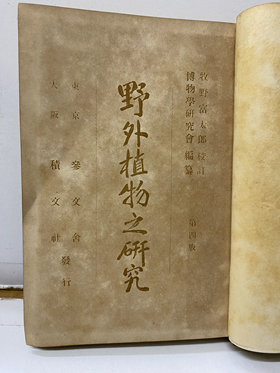 牧野富太郎校訂
博物學研究會編纂
第四版
野外植物之研究
東京 參文舍
大阪 積文社
發行